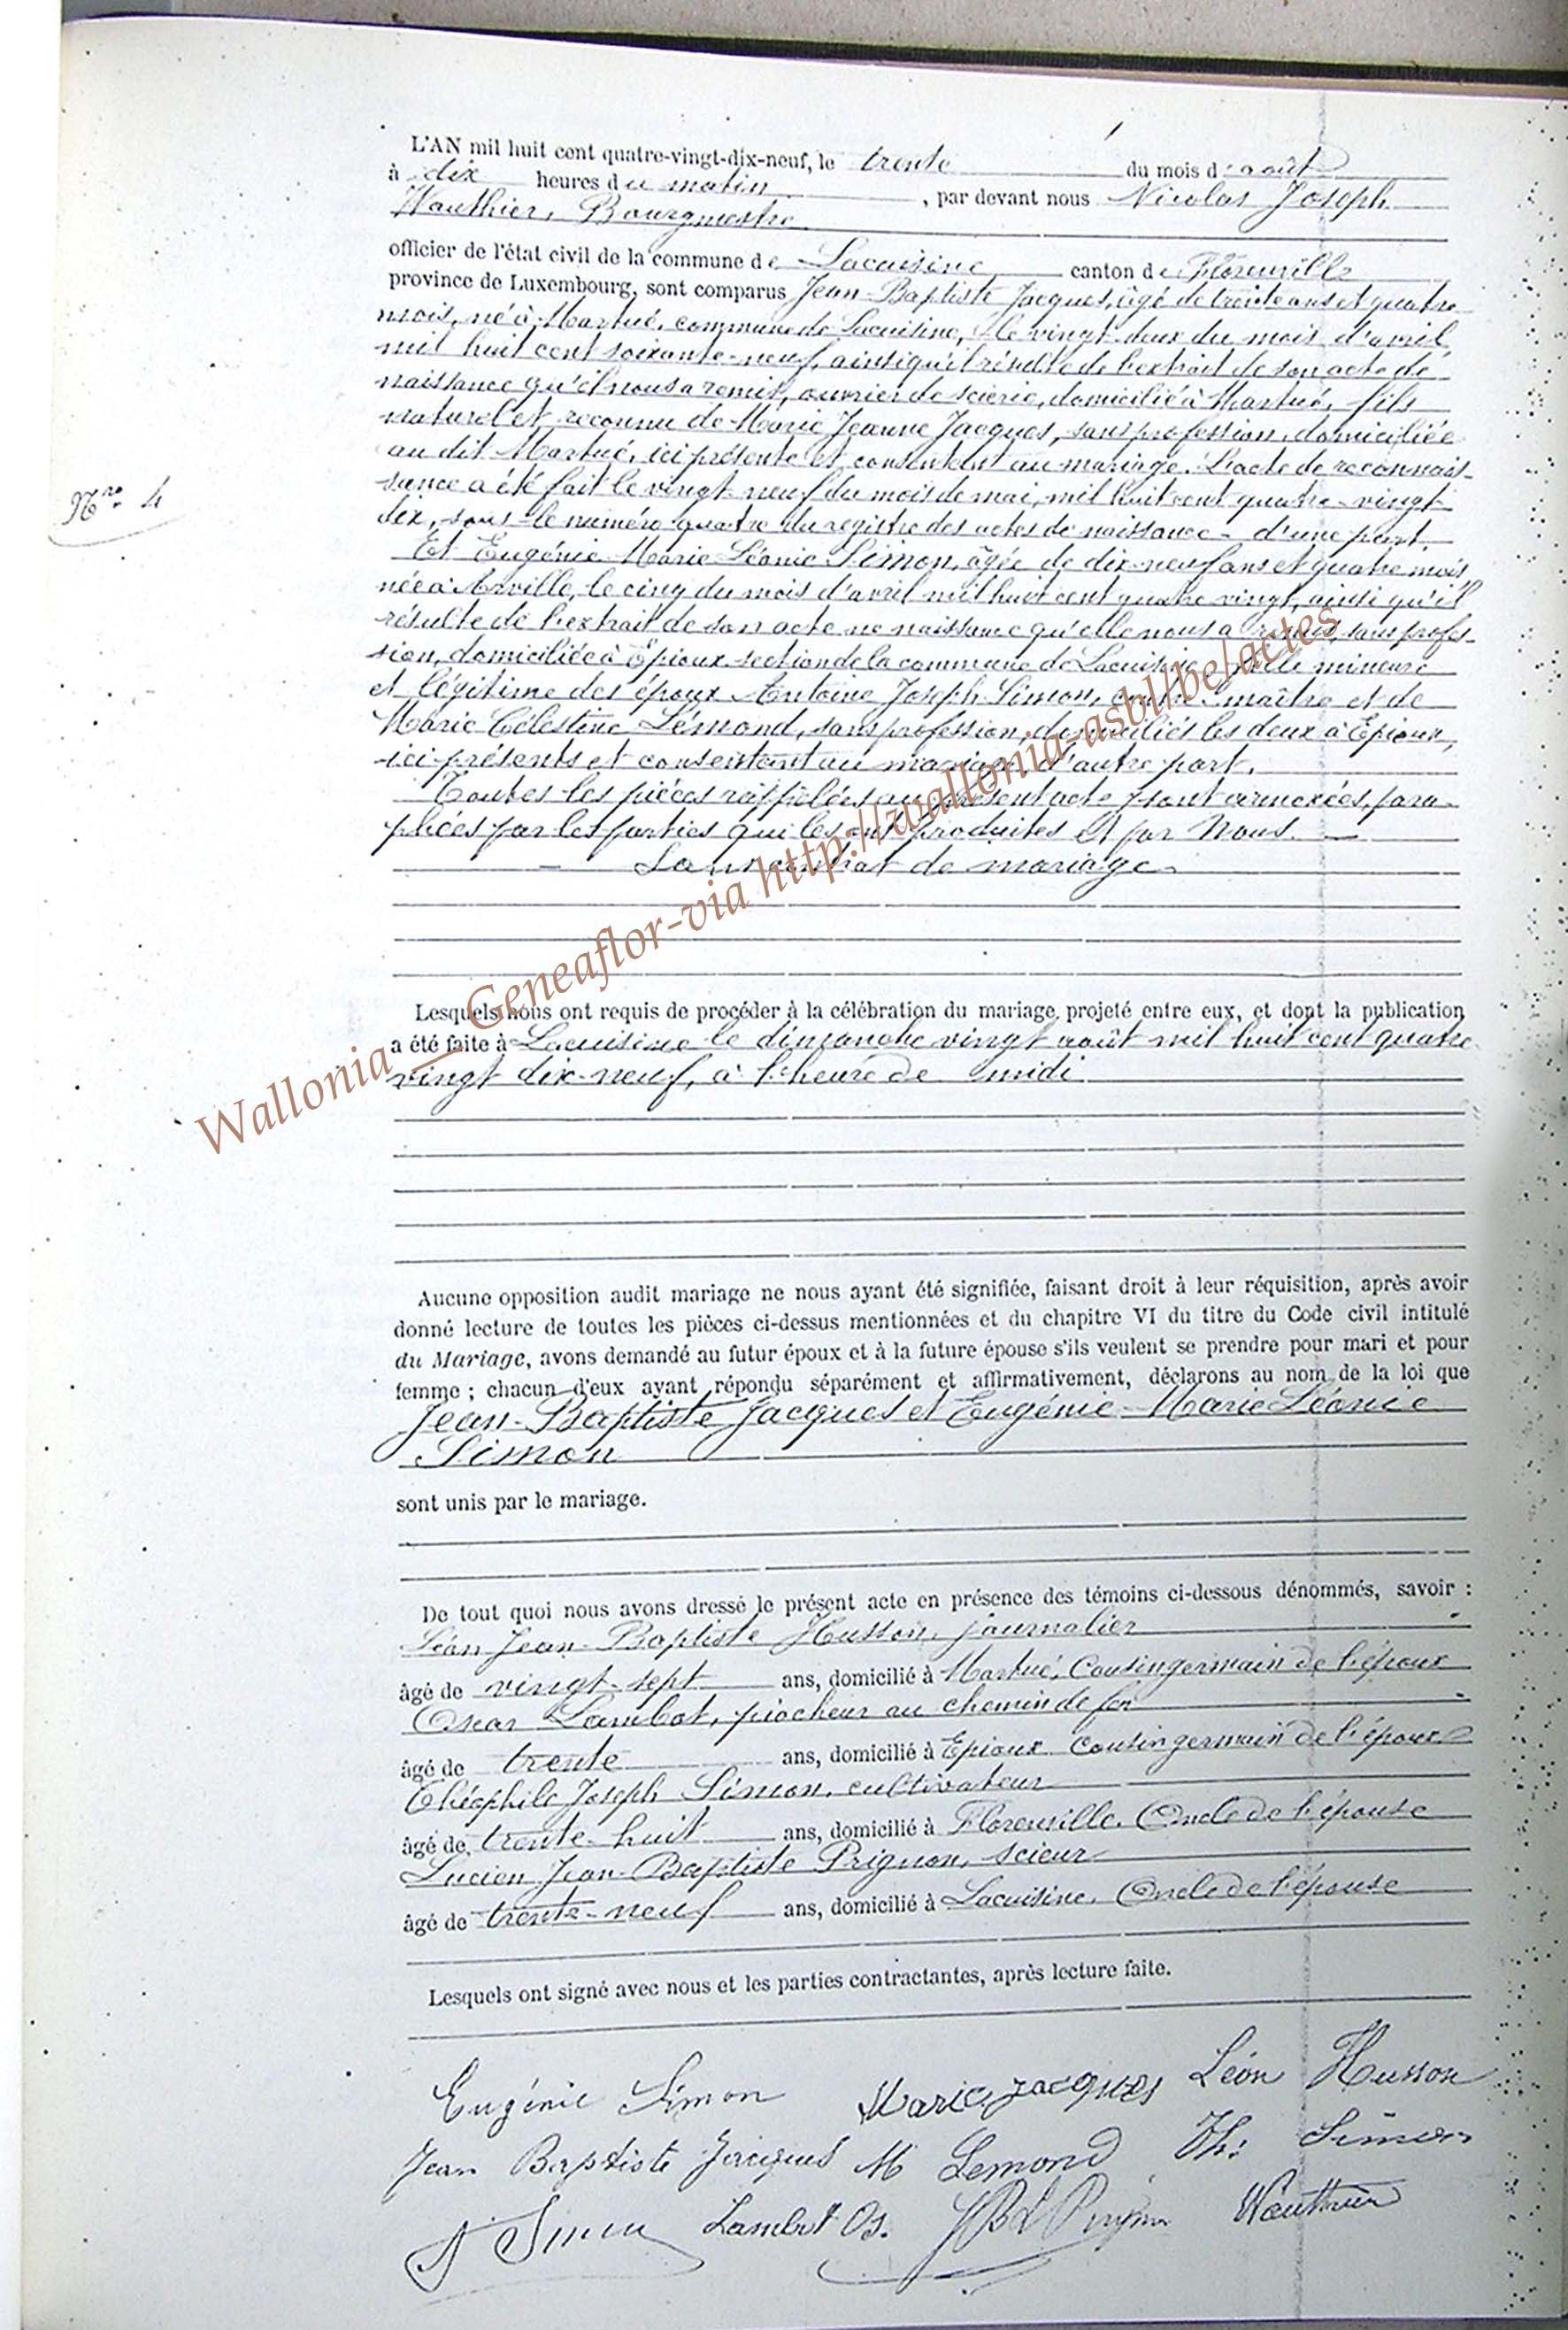 L'AN mil huit cent quatre-vingt-dix-neuf, le trente du mois d'août
à dix heures du matin, par devant nous Nicolas Joseph
Wauthier, Bourgmestre
officier de l'état civil de la commune de Lacuisine canton de Florenville
province de Luxembourg, sont comparus Jean-Baptiste Jacques, âgé de trente ans et quatre
mois, né à Martué, commune de Lacuisine, le vingt-deux du mois d'avril
mil huit cent soixante-neuf, ainsi qu'il résulte de l'extrait de son acte de
naissance qu'il nous a remis, ouvrier de scierie, domicilié à Martué, fils
naturel et reconnu de Marie Jeanne Jacques, sans profession, domiciliée
au dit Martué, ici présente et consentant au mariage. L'acte de reconnais-
sance a été fait le vingt-neuf du mois de mai, mil huit cent quatre-vingt-
dix, sous le numéro quatre du registre des actes de naissance - d'une part.
Nro 4
Et Eugénie Marie Léonie Simon, âgée de dix-neuf ans et quatre mois,
née à Arville, le cinq du mois d'avril mil huit cent quatre vingt, ainsi qu'il
résulte de l'extrait de son acte ne naissance qu'elle nous a remis, sans profes-
sion, domiciliée à Epioux section de la commune de Lacuisine, fille mineure
et légitime des époux Antoine Joseph Simon, maître et de
Marie Célestine Lémond, sans profession, domiciliés les deux à Epioux,
ici présents et consentant au mariage, d'autre part.
Toutes les pièces rappelées au présent acte y sont annexées, para-
phées par les parties qui les ont produites et par Nous.
Sans contrat de mariage
Lesquels nous ont requis de procéder à la célébration du mariage projeté entre eux, et dont la publication
a été faite à Lacuisine le dimanche vingt août mil huit cent quatre
vingt dix-neuf, à l'heure de midi
Aucune opposition audit mariage ne nous ayant été signifiée, faisant droit à leur réquisition, après avoir
donné lecture de toutes les pièces ci-dessus mentionnées et du chapitre VI du titre du Code civil intitulé
du Mariage, avons demandé au futur époux et à la future épouse s'ils veulent se prendre pour mari et pour
femme ; chacun d'eux ayant répondu séparément et affirmativement, déclarons au nom de la loi que
Jean-Baptiste Jacques et Eugénie-Marie Léonie
Simon
sont unis par le mariage.
De tout quoi nous avons dressé le présent acte en présence des témoins ci-dessous dénommés, savoir :
Léon Jean-Baptiste Husson, journalier
âgé de vingt-sept ans, domicilié à Martué, Cousin germain de l'époux
Oscar Lambot, piocheur au chemin de fer
âgé de trente ans, domicilié à Epioux Cousin germain de l'époux
Théophile Joseph Simon, cultivateur
âgé de trente-huit ans, domicilié à Florenville. Oncle de l'épouse
Lucien Jean-Baptiste Prignon, scieur
âgé de trente-neuf ans, domicilié à Lacuisine. Oncle de l'épouse
Lesquels ont signé avec nous et les parties contractantes, après lecture faite.
Eugénie Simon Marie Jacques Léon Husson
Jean Baptiste Jacques M Lemond Th: Simon
A Simon Lambot Os. JBL Prignon Wauthier
Wallonia_Geneaflor-via http://wallonia-asbl.be/actes